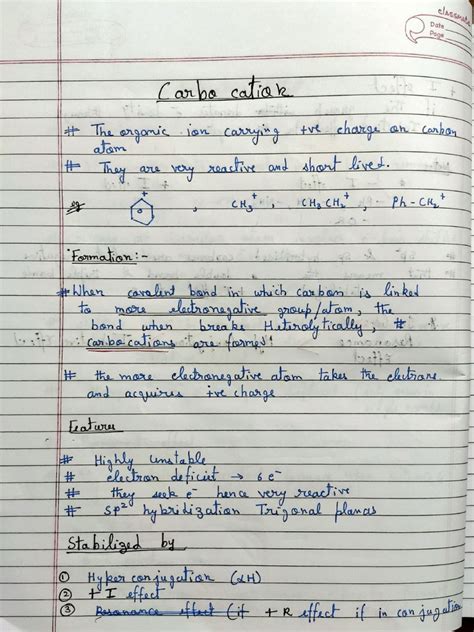 classmate
Date
Page
Carbo cation
# The organic ion carrying +ve charge on carbon
atom
# They are very reactive and short lived.
eg + , CH3+ , CH3CH2+ , Ph-CH2+
Formation:-
# When covalent bond in which carbon is linked
to more electronegative group/atom, the
bond when breaks Heterolytically, #
carbocations are formed
# the more electronegative atom takes the electrons
and acquires +ve charge
Features
# Highly unstable
# electron deficit → 6e-
# they seek e- hence very reactive
# SP2 hybridization Trigonal planas
Stabilized by
① Hyper conjugation (αH)
② + I effect
③ Resonance effect (if + R effect if in conjugation